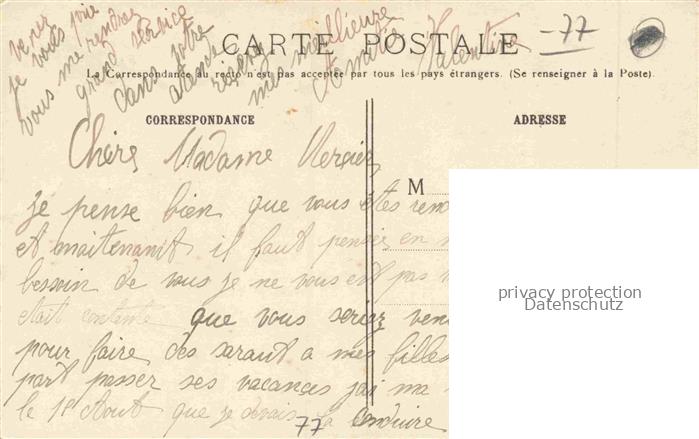 venez
je vous prie
vous me rendrez
grand service
dans votre
atende
mes meilleure
Amitié
Valentine
-77
CARTE POSTALE
La Correspondance au recto n'est pas acceptée par tous les pays étrangers. (Se renseigner à la Poste).
CORRESPONDANCE
ADRESSE
M
Chère Madame Mercier
je pense bien que vous êtes
et maitenant il faut penser en
besoin de vous je ne vous est pas
était contente que vous seriez
pour faire des a mes filles
part passer ses vacances jai ma
le 1er Aout que je devais la conduire
77
privacy protection
Datenschutz